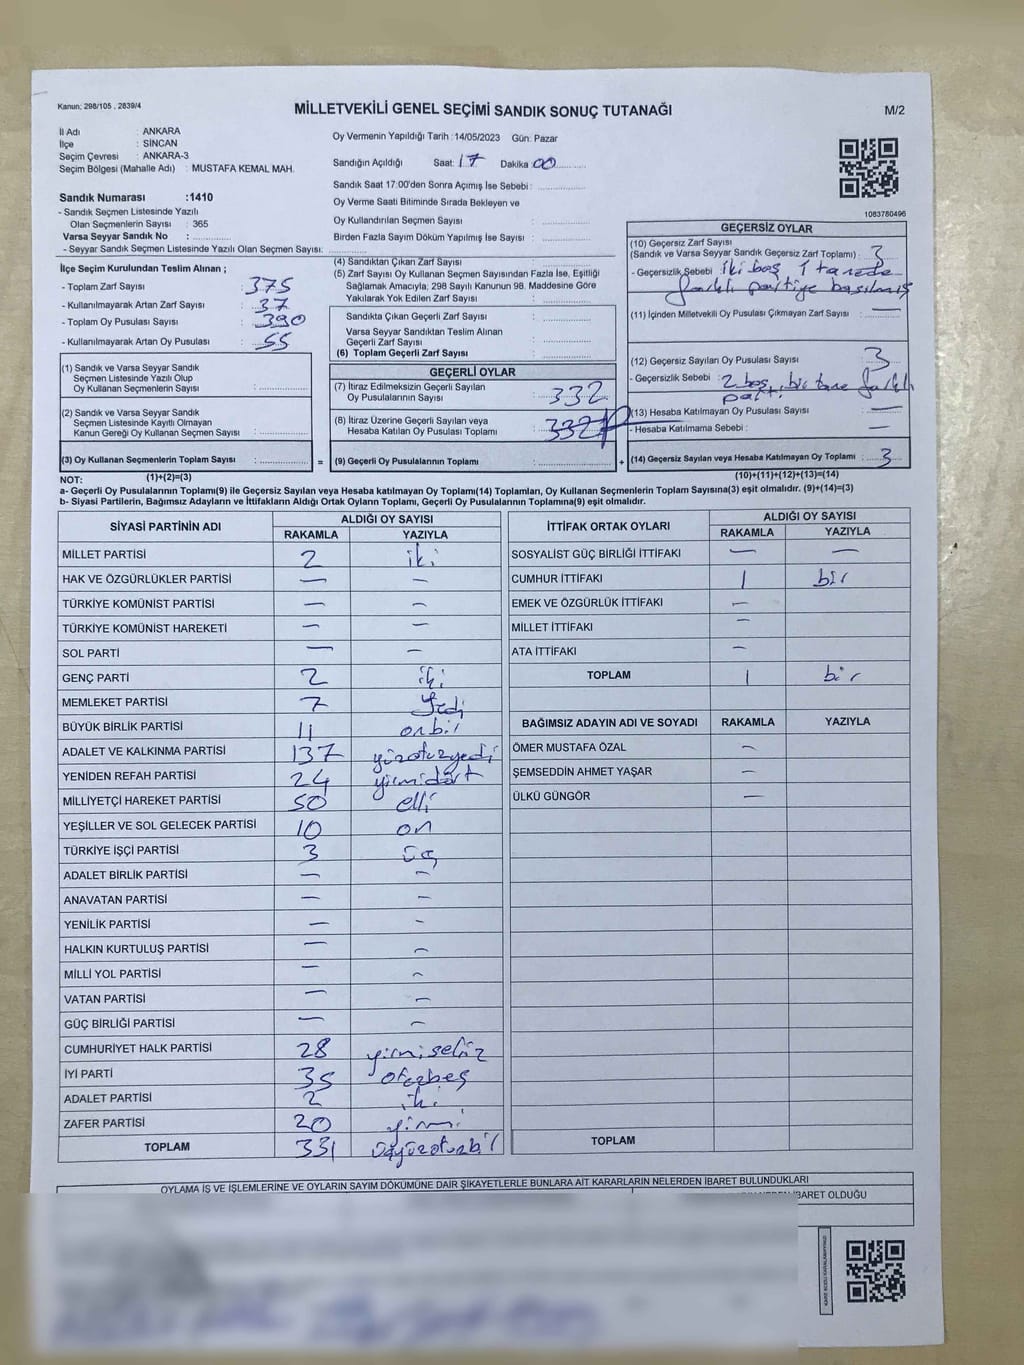 Kanun; 298/105 , 2839/4
MİLLETVEKİLİ GENEL SEÇİMİ SANDIK SONUÇ TUTANAĞI
M/2
İl Adı : ANKARA
İlçe : SİNCAN
Seçim Çevresi : ANKARA-3
Seçim Bölgesi (Mahalle Adı) : MUSTAFA KEMAL MAH.
Sandık Numarası :1410
- Sandık Seçmen Listesinde Yazılı
Olan Seçmenlerin Sayısı : 365
Varsa Seyyar Sandık No :
- Seyyar Sandık Seçmen Listesinde Yazılı Olan Seçmen Sayısı:
Oy Vermenin Yapıldığı Tarih :14/05/2023 Gün: Pazar
Sandığın Açıldığı Saat: 17 Dakika 00
Sandık Saat 17:00'den Sonra Açımış İse Sebebi :
Oy Verme Saati Bitiminde Sırada Bekleyen ve
Oy Kullandırılan Seçmen Sayısı :
Birden Fazla Sayım Döküm Yapılmış İse Sayısı :
1083780496
İlçe Seçim Kurulundan Teslim Alınan ;
- Toplam Zarf Sayısı : 375
- Kullanılmayarak Artan Zarf Sayısı : 37
- Toplam Oy Pusulası Sayısı : 390
- Kullanılmayarak Artan Oy Pusulası : 55
(1) Sandık ve Varsa Seyyar Sandık
Seçmen Listesinde Yazılı Olup
Oy Kullanan Seçmenlerin Sayısı :
(2) Sandık ve Varsa Seyyar Sandık
Seçmen Listesinde Kayıtlı Olmayan
Kanun Gereği Oy Kullanan Seçmen Sayısı :
(3) Oy Kullanan Seçmenlerin Toplam Sayısı :
(4) Sandıktan Çıkan Zarf Sayısı :
(5) Zarf Sayısı Oy Kullanan Seçmen Sayısından Fazla İse, Eşitliği
Sağlamak Amacıyla; 298 Sayılı Kanunun 98. Maddesine Göre
Yakılarak Yok Edilen Zarf Sayısı :
Sandıkta Çıkan Geçerli Zarf Sayısı :
Varsa Seyyar Sandıktan Teslim Alınan
Geçerli Zarf Sayısı :
(6) Toplam Geçerli Zarf Sayısı :
GEÇERLİ OYLAR
(7) İtiraz Edilmeksizin Geçerli Sayılan
Oy Pusulalarının Sayısı : 332
(8) İtiraz Üzerine Geçerli Sayılan veya
Hesaba Katılan Oy Pusulası Toplamı : 332
= (9) Geçerli Oy Pusulalarının Toplamı :
GEÇERSİZ OYLAR
(10) Geçersiz Zarf Sayısı
(Sandık ve Varsa Seyyar Sandık Geçersiz Zarf Toplamı) : 3
- Geçersizlik Sebebi : iki boş 1 tanede
farklı partiye basılmış
(11) İçinden Milletvekili Oy Pusulası Çıkmayan Zarf Sayısı : —
(12) Geçersiz Sayılan Oy Pusulası Sayısı : 3
- Geçersizlik Sebebi : 2 boş, bir tane farklı
parti
(13) Hesaba Katılmayan Oy Pusulası Sayısı : —
- Hesaba Katılmama Sebebi : —
+ (14) Geçersiz Sayılan veya Hesaba Katılmayan Oy Toplamı : 3
NOT: (1)+(2)=(3) (10)+(11)+(12)+(13)=(14)
a- Geçerli Oy Pusulalarının Toplamı(9) ile Geçersiz Sayılan veya Hesaba Katılmayan Oy Toplamı(14) Toplamları, Oy Kullanan Seçmenlerin Toplam Sayısına(3) eşit olmalıdır. (9)+(14)=(3)
b- Siyasi Partilerin, Bağımsız Adayların ve İttifakların Aldığı Ortak Oyların Toplamı, Geçerli Oy Pusulalarının Toplamına(9) eşit olmalıdır.
SİYASİ PARTİNİN ADI ALDIĞI OY SAYISI
RAKAMLA YAZIYLA
MİLLET PARTİSİ 2 iki
HAK VE ÖZGÜRLÜKLER PARTİSİ — —
TÜRKİYE KOMÜNİST PARTİSİ — —
TÜRKİYE KOMÜNİST HAREKETİ — —
SOL PARTİ — —
GENÇ PARTİ 2 iki
MEMLEKET PARTİSİ 7 Yedi
BÜYÜK BİRLİK PARTİSİ 11 onbir
ADALET VE KALKINMA PARTİSİ 137 yüzotuzyedi
YENİDEN REFAH PARTİSİ 24 yirmidört
MİLLİYETÇİ HAREKET PARTİSİ 50 elli
YEŞİLLER VE SOL GELECEK PARTİSİ 10 on
TÜRKİYE İŞÇİ PARTİSİ 3 üç
ADALET BİRLİK PARTİSİ — —
ANAVATAN PARTİSİ — —
YENİLİK PARTİSİ — —
HALKIN KURTULUŞ PARTİSİ — —
MİLLİ YOL PARTİSİ — —
VATAN PARTİSİ — —
GÜÇ BİRLİĞİ PARTİSİ — —
CUMHURİYET HALK PARTİSİ 28 yirmisekiz
İYİ PARTİ 35 otuzbeş
ADALET PARTİSİ 2 iki
ZAFER PARTİSİ 20 yirmi
TOPLAM 331 üçyüzotuzbir
İTTİFAK ORTAK OYLARI ALDIĞI OY SAYISI
RAKAMLA YAZIYLA
SOSYALİST GÜÇ BİRLİĞİ İTTİFAKI — —
CUMHUR İTTİFAKI 1 bir
EMEK VE ÖZGÜRLÜK İTTİFAKI —
MİLLET İTTİFAKI —
ATA İTTİFAKI —
TOPLAM 1 bir
BAĞIMSIZ ADAYIN ADI VE SOYADI RAKAMLA YAZIYLA
ÖMER MUSTAFA ÖZAL —
ŞEMSEDDİN AHMET YAŞAR —
ÜLKÜ GÜNGÖR —
TOPLAM
OYLAMA İŞ VE İŞLEMLERİNE VE OYLARIN SAYIM DÖKÜMÜNE DAİR ŞİKAYETLERLE BUNLARA AİT KARARLARIN NELERDEN İBARET BULUNDUKLARI
İBARET OLDUĞU